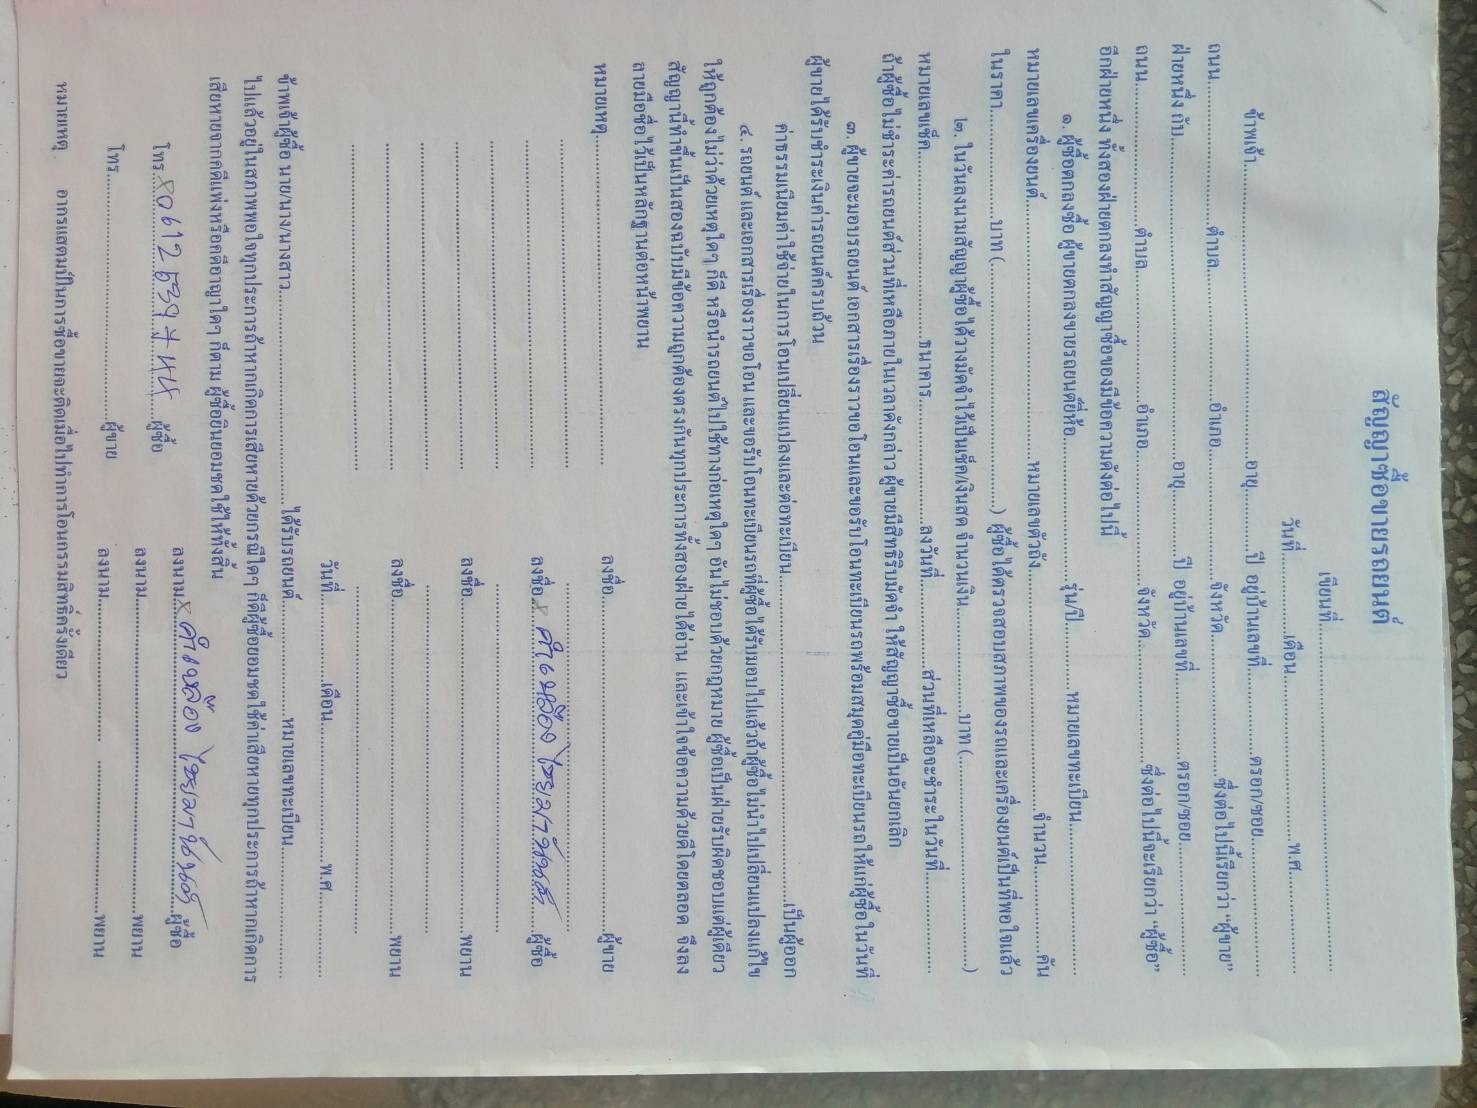 สัญญาซื้อขายรถยนต์
เขียนที่..............................
วันที่..............เดือน..............................พ.ศ..............
ข้าพเจ้า..............................อายุ..............ปี อยู่บ้านเลขที่..............ตรอก/ซอย..............
ถนน..............ตำบล..............อำเภอ..............จังหวัด..............ซึ่งต่อไปนี้เรียกว่า "ผู้ขาย"
ฝ่ายหนึ่ง กับ..............................อายุ..............ปี อยู่บ้านเลขที่..............ตรอก/ซอย..............
ถนน..............ตำบล..............อำเภอ..............จังหวัด..............ซึ่งต่อไปนี้จะเรียกว่า "ผู้ซื้อ"
อีกฝ่ายหนึ่ง ทั้งสองฝ่ายตกลงทำสัญญาซื้อของมีข้อความดังต่อไปนี้
๑. ผู้ซื้อตกลงซื้อ ผู้ขายตกลงขายรถยนต์ยี่ห้อ..............รุ่น/ปี..............หมายเลขทะเบียน..............
หมายเลขเครื่องยนต์..............................หมายเลขตัวถัง..............................จำนวน..............คัน
ในราคา..............บาท (..............................) ผู้ซื้อได้ตรวจสอบสภาพของรถและเครื่องยนต์เป็นที่พอใจแล้ว
๒. ในวันลงนามสัญญาผู้ซื้อได้วางมัดจำไว้เป็นเช็ค/เงินสด จำนวนเงิน..............บาท (..............................)
หมายเลขเช็ค..............................ธนาคาร..............ลงวันที่..............ส่วนที่เหลือจะชำระในวันที่..............
ถ้าผู้ซื้อไม่ชำระค่ารถยนต์ส่วนที่เหลือภายในเวลาดังกล่าว ผู้ขายมีสิทธิริบมัดจำ ให้สัญญาซื้อขายเป็นอันยกเลิก
๓. ผู้ขายจะมอบรถยนต์ เอกสารเรื่องราวขอโอนและขอรับโอนทะเบียนรถพร้อมสมุดคู่มือทะเบียนรถให้แก่ผู้ซื้อ ในวันที่
ผู้ขายได้รับชำระเงินค่ารถยนต์ครบถ้วน
ค่าธรรมเนียมค่าใช้จ่ายในการโอนเปลี่ยนแปลงและต่อทะเบียน..............................เป็นผู้ออก
๔. รถยนต์ และเอกสารเรื่องราวขอโอน และขอรับโอนทะเบียนรถที่ผู้ซื้อได้รับมอบไปแล้วถ้าผู้ซื้อไม่นำไปเปลี่ยนแปลงแก้ไข
ให้ถูกต้อง ไม่ว่าด้วยเหตุใดๆ ก็ดี หรือนำรถยนต์ไปใช้ทางก่อเหตุใดๆ อันไม่ชอบด้วยกฎหมาย ผู้ซื้อเป็นฝ่ายรับผิดชอบแต่ผู้เดียว
สัญญานี้ทำขึ้นเป็นสองฉบับมีข้อความถูกต้องตรงกันทุกประการ ทั้งสองฝ่ายได้อ่าน และเข้าใจข้อความด้วยดีโดยตลอด จึงลง
ลายมือชื่อไว้เป็นหลักฐานต่อหน้าพยาน
หมายเหตุ..............................ลงชื่อ..............................ผู้ขาย
ลงชื่อ x ..............................ผู้ซื้อ
ลงชื่อ..............................พยาน
ลงชื่อ..............................พยาน
วันที่..............เดือน..............................พ.ศ..............
ข้าพเจ้าผู้ซื้อ นาย/นาง/นางสาว..............................ได้รับรถยนต์..............หมายเลขทะเบียน..............
ไปแล้วอยู่ในสภาพพอใจทุกประการถ้าหากเกิดการเสียหายด้วยกรณีใดๆ ก็ดีผู้ซื้อยอมชดใช้ค่าเสียหายทุกประการถ้าหากเกิดการ
เสียหายจากคดีแพ่งหรือคดีอาญาใดๆ ก็ตาม ผู้ซื้อยินยอมชดใช้ให้ทั้งสิ้น
โทร. x 0612 ..............ผู้ซื้อ ลงนาม x ..............................ผู้ซื้อ
โทร..............................ผู้ขาย ลงนาม..............................พยาน
ลงนาม..............................พยาน
หมายเหตุ. อากรแสตมป์ในการซื้อขายจะติดเมื่อไปทำการโอนกรรมสิทธิ์ครั้งเดียว